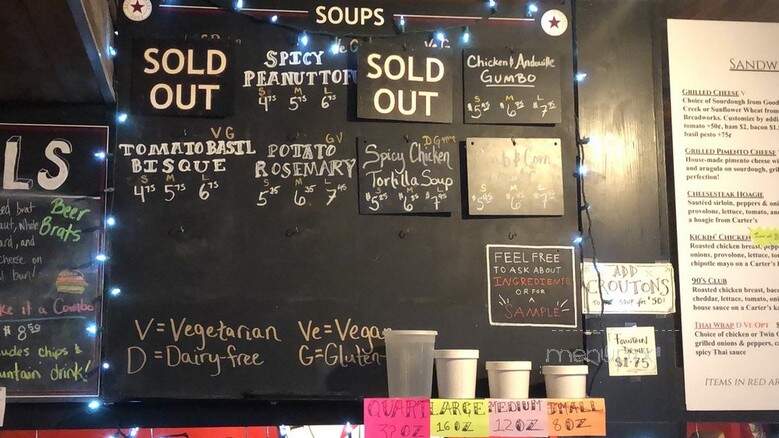 SOUPS
SOLD OUT
SPICY
PEANUT TOF
S M L
4.75 5.75 6.75
SOLD OUT
Chicken & Andouille
GUMBO
S M L
VG
TOMATO BASIL
BISQUE
S M L
4.75 5.75 6.75
GV
POTATO
ROSEMARY
S M L
5.35 6.35 7.45
DG
Spicy Chicken
Tortilla Soup
S M L
Corn
S M L
FEEL FREE
TO ASK ABOUT
INGREDIENTS
OR FOR
A
SAMPLE
V = Vegetarian Ve = Vegan
D = Dairy-free G = Gluten-
ADD
CROUTONS
TO SOUP for $.50!
Fountain
Drink
$1.75
QUART
32 OZ
LARGE
16 OZ
MEDIUM
12 OZ
SMALL
8 OZ
LS
Beer
Brats
brat
while
and
cheese on
bun!
ke it a Combo
$8.50
udes chips &
untain drink!
SANDW
GRILLED CHEESE V
Choice of Sourdough from Good
Creek or Sunflower Wheat from
Breadworks. Customize by addi
tomato +50¢, ham $2, bacon $1
basil pesto +75¢
GRILLED PIMENTO CHEESE
House-made pimento cheese wi
and arugula on sourdough, gril
perfection!
CHEESESTEAK HOAGIE
Sautéed sirloin, peppers & oni
provolone, lettuce, tomato,
a hoagie from Carter's
KICKIN' CHICKEN
Roasted chicken breast, pepp
onions, provolone, lettuce, to
chipotle mayo on a Carter's
90'S CLUB
Roasted chicken breast, bac
cheddar, lettuce, tomato,
house sauce on a Carter's
THAI WRAP D VE OPT
Choice of chicken or Twin
grilled onions & peppers,
spicy Thai sauce
ITEMS IN RED AR